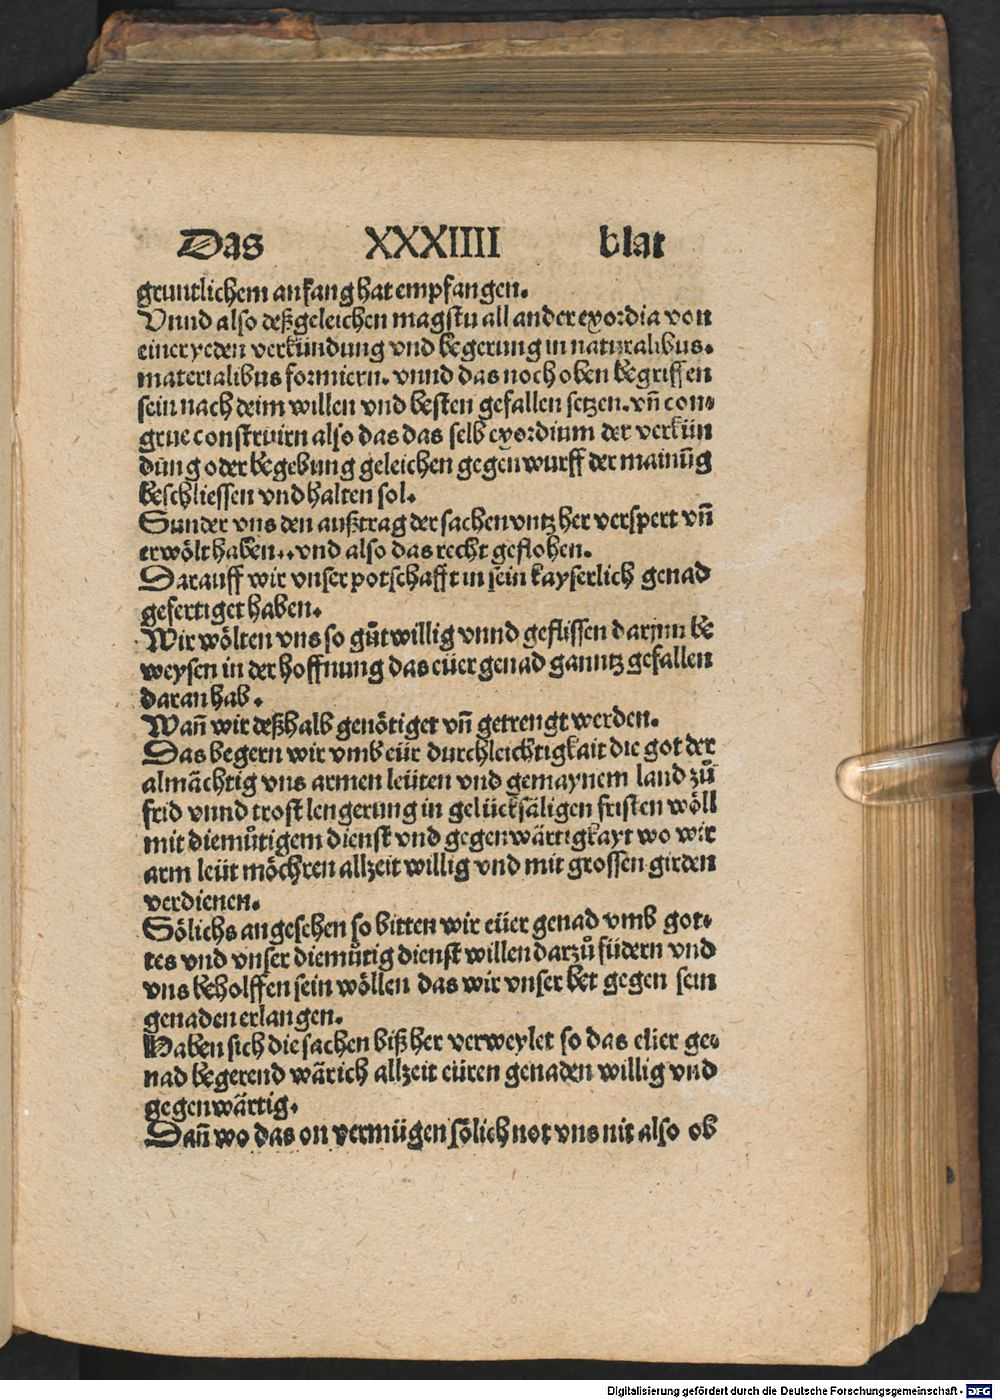 Das XXXIIII blat
gruntlichem anfang hat empfangen.
Vnnd also deßgeleichen magstu all ander exordia von
einer yeden verkündung vnd begerung in naturalibus.
materialibus formiern. vnnd das noch oben begriffen
sein nach deim willen vnd besten gefallen setzen. vñ con⸗
grue construirn also das das selb exordium der verkün
dung oder begebung geleichen gegenwurff der mainūg
beschliessen vnd halten sol.
Sunder vns den außtrag der sachen vntz her verspert vñ
erwölt haben.. vnd also das recht geflohen.
Darauff wir vnser potschafft in sein kayserlich genad
gefertiget haben.
Wir wölten vns so gůtwillig vnnd geflissen darjnn be
weysen in der hoffnung das eüer genad ganntz gefallen
daran hab.
Wañ wir deßhalb genötiget vñ getrengt werden.
Das begern wir vmb eür durchleichtigkait die got der
almächtig vns armen leüten vnd gemaynem land zů
frid vnnd trost lengerung in gelücksäligen fristen wöll
mit diemůtigem dienst vnd gegenwärtigkayt wo wir
arm leüt möchren allzeit willig vnd mit grossen girden
verdienen.
Sölichs angesehen so bitten wir eüer genad vmb got⸗
tes vnd vnser diemůtig dienst willen darzů füdern vnd
vns beholffen sein wöllen das wir vnser bet gegen sein
genaden erlangen.
Haben sich die sachen biß her verweylet so das elier ge⸗
nad begerend wär ich allzeit eüren genaden willig vnd
gegenwärtig.
Dañ wo das on vermügen sölich not vns nit also ob
Digitalisierung gefördert durch die Deutsche Forschungsgemeinschaft - DFG